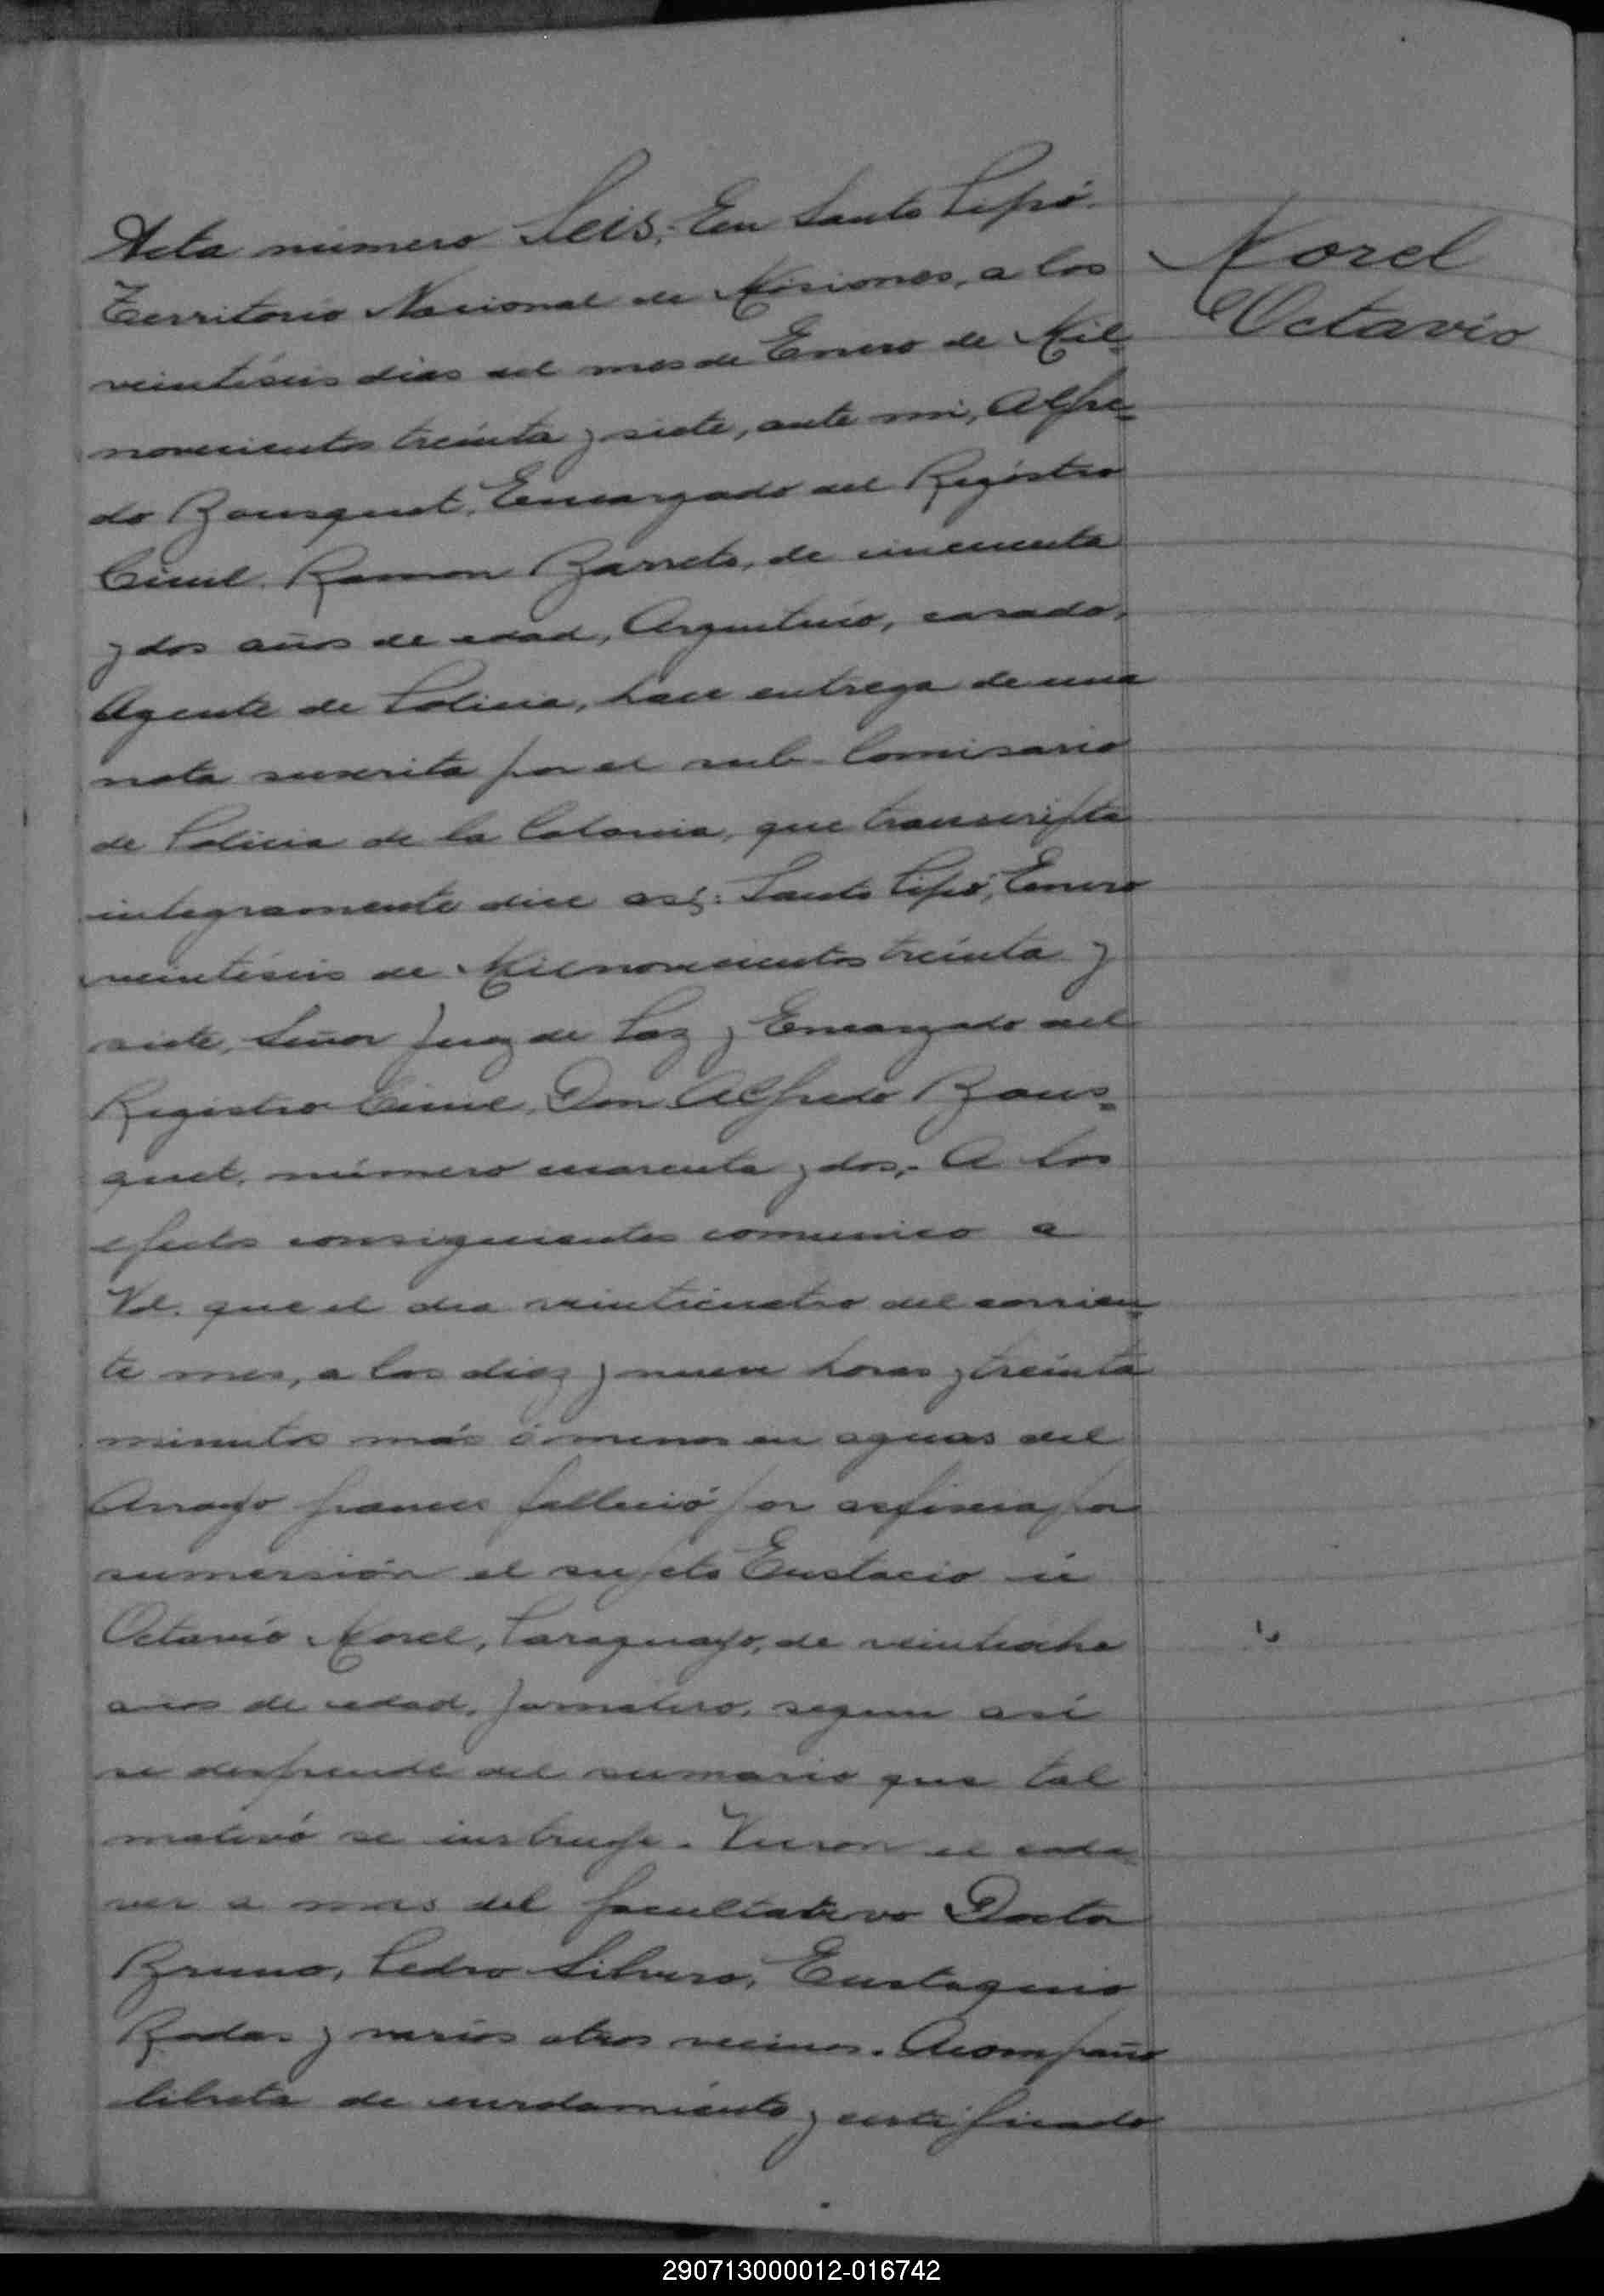 Acta número Seis. En Santo Pipó.
Territorio Nacional de Misiones, a los
veintiséis dias del mes de Enero de Mil
novecientos treinta y siete, ante mi, Alfre=
do Bousquet, Encargado del Registro
Civil. Ramon Barreto, de cincuenta
y dos años de edad, Argentino, casado,
Agente de Policia, hace entrega de una
nota suscrita por el sub-Comisario
de Policia de la Colonia, que transcripta
integramente dice así: Santo Pipó, Enero
veintiséis de Mil novecientos treinta y
siete. Señor Juez de Paz y Encargado del
Registro Civil, Don Alfredo Bous=
quet, número cuarenta y dos,- A los
efectos consiguientes comunico a
Vd. que el dia veinticuatro del corrien=
te mes, a las diez y nueve horas y treinta
minutos más ó menos en aguas del
Arroyo frances falleció por asfixia por
sumersión el sujeto Eustacio ú
Octavio Morel, Paraguayo, de veintiocho
años de edad, Jornalero, segun así
se desprende del sumario que tal
motivó se instruye. Vieron el cada
ver a mas del facultativo Doctor
Bruno, Pedro Silvero, Eustaquio
Rodas y varios otros vecinos. Acompaño
libreta de enrolamiento y certificado
Morel
Octavio
290713000012-016742